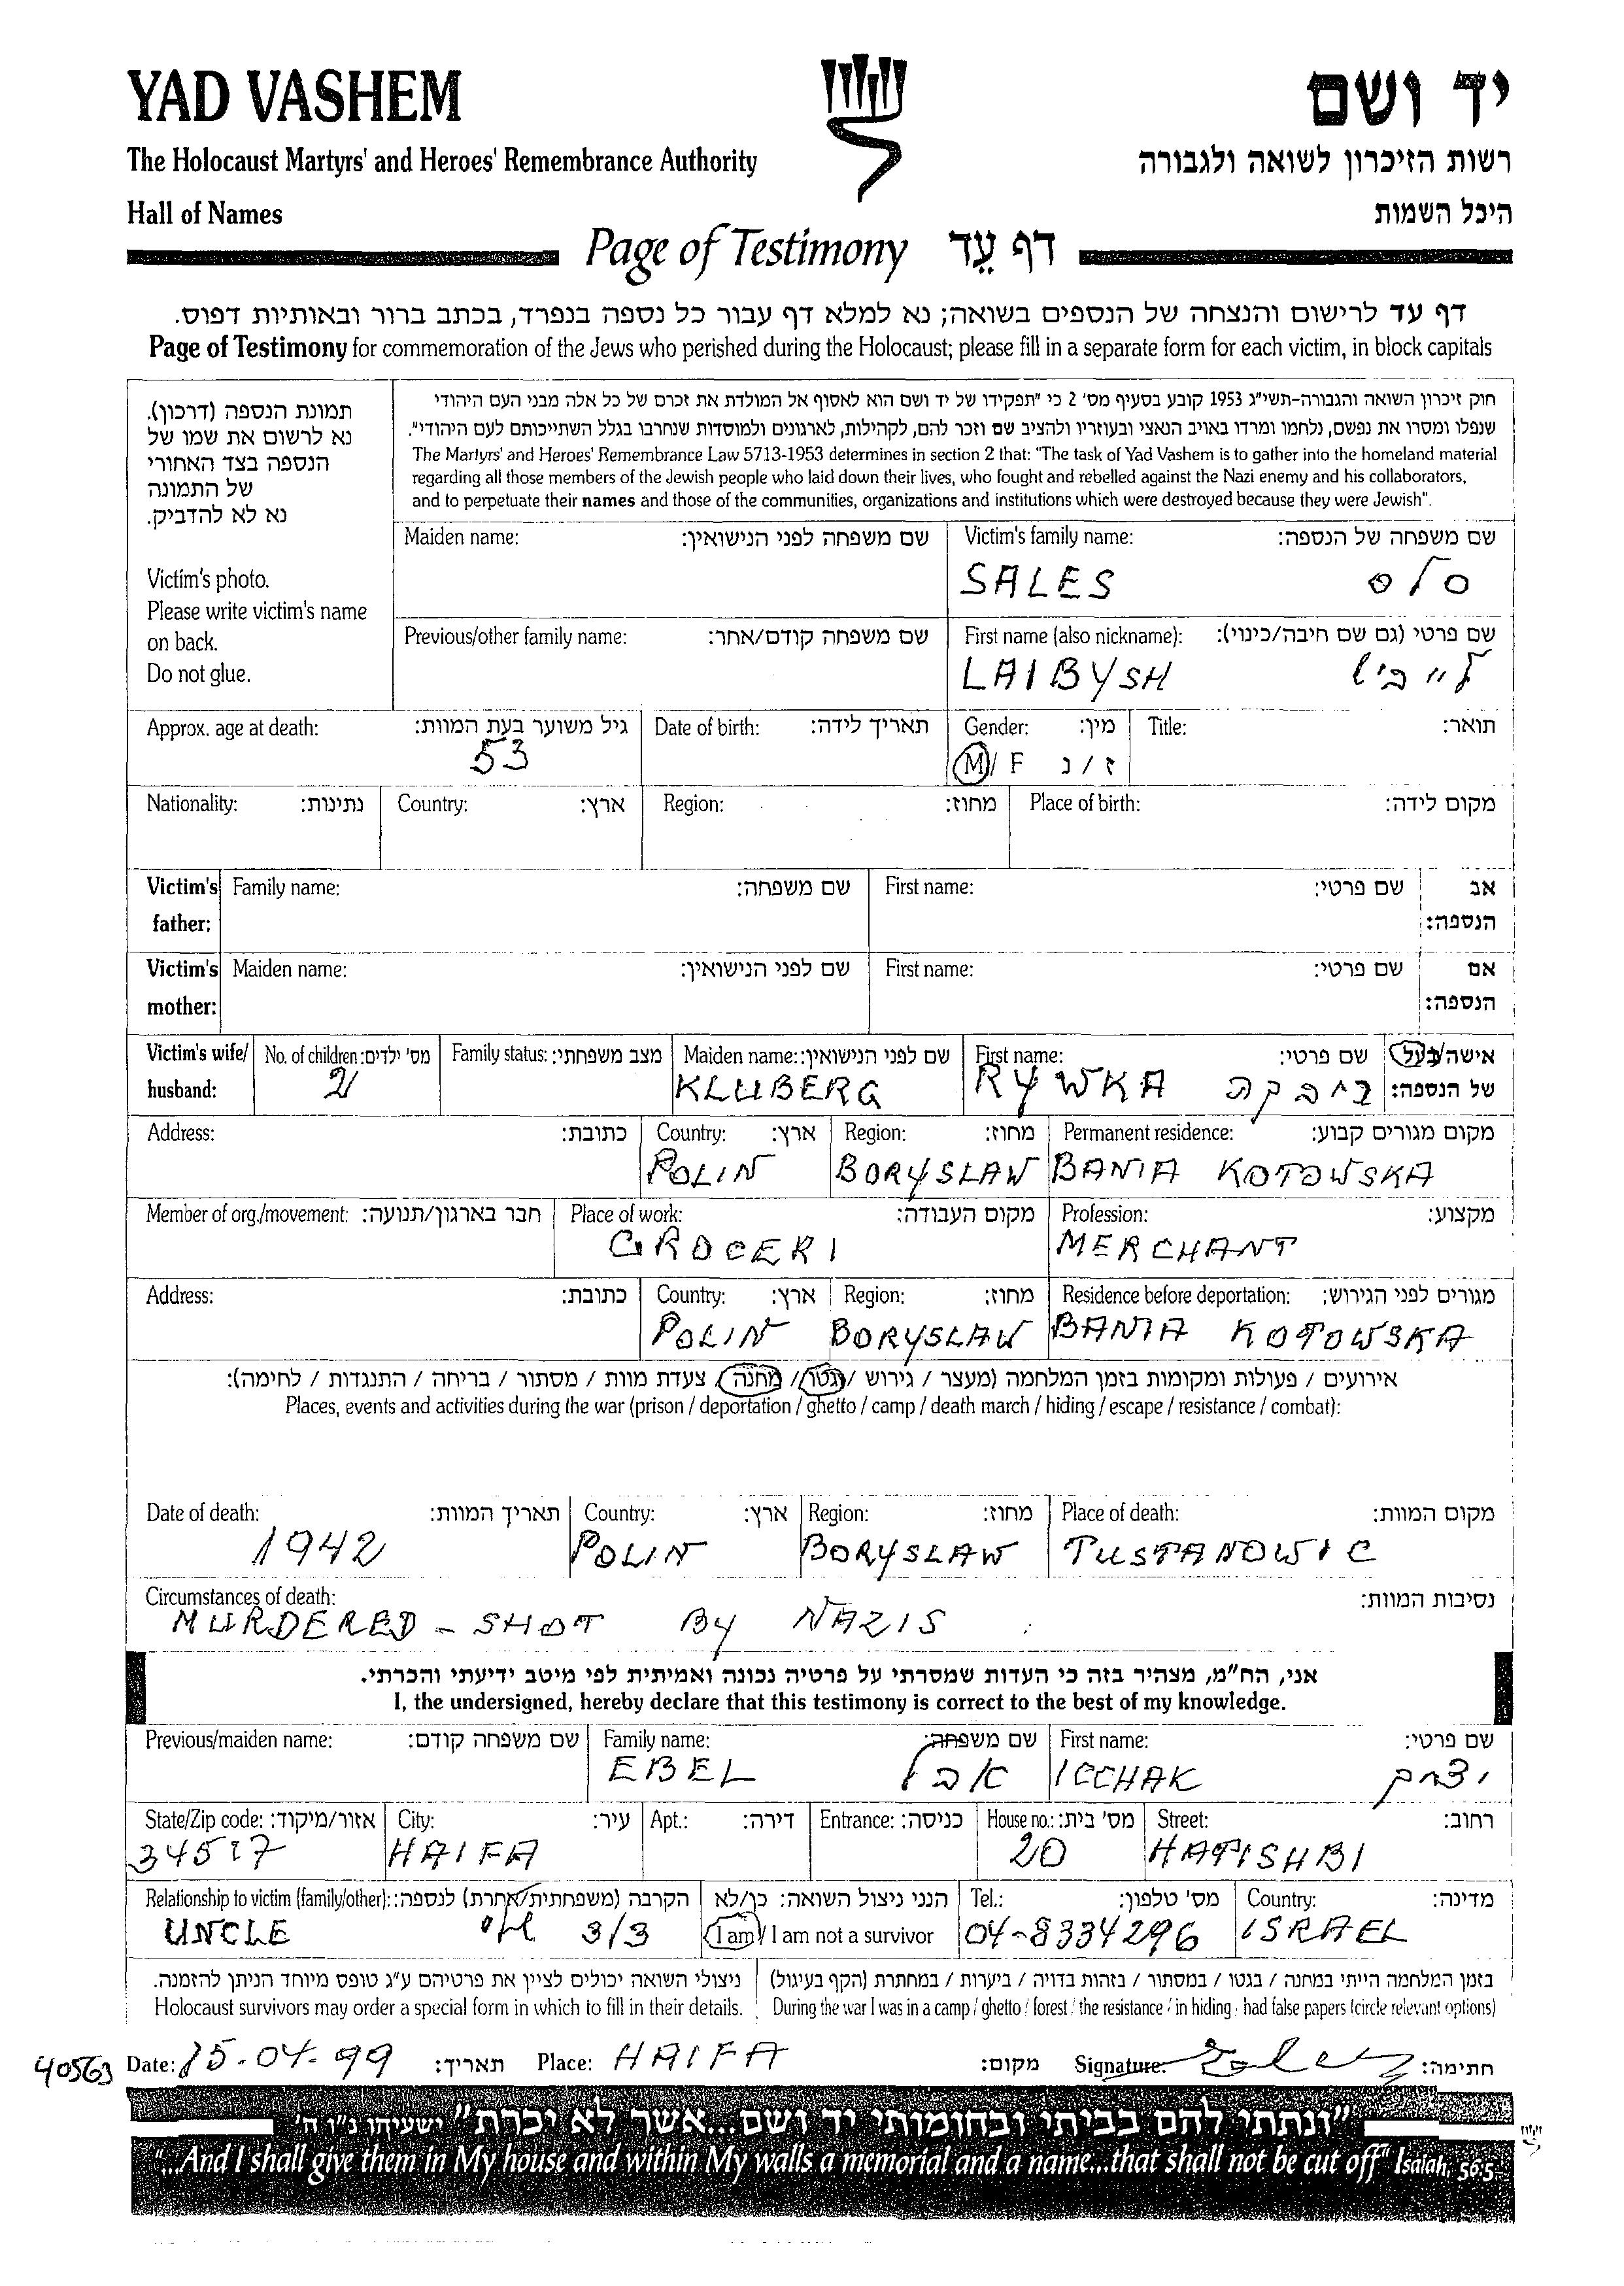 YAD VASHEM
יד ושם
The Holocaust Martyrs' and Heroes' Remembrance Authority
רשות הזיכרון לשואה ולגבורה
Hall of Names
היכל השמות
Page of Testimony דף עֵד
דף עד לרישום והנצחה של הנספים בשואה; נא למלא דף עבור כל נספה בנפרד, בכתב ברור ובאותיות דפוס.
Page of Testimony for commemoration of the Jews who perished during the Holocaust; please fill in a separate form for each victim, in block capitals
תמונת הנספה (דרכון).
נא לרשום את שמו של
הנספה בצד האחורי
של התמונה
נא לא להדביק.
Victim's photo.
Please write victim's name
on back.
Do not glue.
חוק זיכרון השואה והגבורה-תשי"ג 1953 קובע בסעיף מס' 2 כי "תפקידו של יד ושם הוא לאסוף אל המולדת את זכרם של כל אלה מבני העם היהודי
שנפלו ומסרו את נפשם, נלחמו ומרדו באויב הנאצי ובעוזריו ולהציב שם וזכר להם, לקהילות, לארגונים ולמוסדות שנחרבו בגלל השתייכותם לעם היהודי".
The Martyrs' and Heroes' Remembrance Law 5713-1953 determines in section 2 that: "The task of Yad Vashem is to gather into the homeland material
regarding all those members of the Jewish people who laid down their lives, who fought and rebelled against the Nazi enemy and his collaborators,
and to perpetuate their names and those of the communities, organizations and institutions which were destroyed because they were Jewish".
Maiden name: שם משפחה לפני הנישואין: Victim's family name: שם משפחה של הנספה:
SALES סלס
Previous/other family name: שם משפחה קודם/אחר: First name (also nickname): שם פרטי (גם שם חיבה/כינוי):
LAIBYSH לייביש
Approx. age at death: גיל משוער בעת המוות: Date of birth: תאריך לידה: Gender: מין: Title: תואר:
53 M/F ז/נ
Nationality: נתינות: Country: ארץ: Region: מחוז: Place of birth: מקום לידה:
Victim's father: Family name: שם משפחה: First name: שם פרטי: אב הנספה:
Victim's mother: Maiden name: שם לפני הנישואין: First name: שם פרטי: אם הנספה:
Victim's wife/ husband: No. of children: מס' ילדים: Family status: מצב משפחתי: Maiden name: שם לפני הנישואין: First name: שם פרטי: אישה/בעל של הנספה:
2 KLUBERG RYWKA
Address: כתובת: Country: ארץ: Region: מחוז: Permanent residence: מקום מגורים קבוע:
POLIN BORYSLAW BANIA KOTOWSKA
Member of org./movement: חבר בארגון/תנועה: Place of work: מקום העבודה: Profession: מקצוע:
GROCERI MERCHANT
Address: כתובת: Country: ארץ: Region: מחוז: Residence before deportation: מגורים לפני הגירוש:
POLIN BORYSLAW BANIA KOTOWSKA
אירועים / פעולות ומקומות בזמן המלחמה (מעצר / גירוש / גטו / מחנה / צעדת מוות / מסתור / בריחה / התנגדות / לחימה):
Places, events and activities during the war (prison / deportation / ghetto / camp / death march / hiding / escape / resistance / combat):
Date of death: תאריך המוות: Country: ארץ: Region: מחוז: Place of death: מקום המוות:
1942 POLIN BORYSLAW TUSTANOWIC
Circumstances of death: נסיבות המוות:
MURDERED - SHOT BY NAZIS
אני, הח"מ, מצהיר בזה כי העדות שמסרתי על פרטיה נכונה ואמיתית לפי מיטב ידיעתי והכרתי.
I, the undersigned, hereby declare that this testimony is correct to the best of my knowledge.
Previous/maiden name: שם משפחה קודם: Family name: שם משפחה: First name: שם פרטי:
EBEL אבל ICCHAK יצחק
State/Zip code: אזור/מיקוד: City: עיר: Apt.: דירה: Entrance: כניסה: House no.: מס' בית: Street: רחוב:
34517 HAIFA 20 HATISHBI
Relationship to victim (family/other): הקרבה (משפחתית/אחרת) לנספה: הנני ניצול השואה: כן/לא Tel.: מס' טלפון: Country: מדינה:
UNCLE I am / I am not a survivor 04-8334296 ISRAEL
ניצולי השואה יכולים לציין את פרטיהם ע"ג טופס מיוחד הניתן להזמנה. בזמן המלחמה הייתי במחנה / בגטו / במסתור / בזהות בדויה / ביערות / במחתרת (הקף בעיגול)
Holocaust survivors may order a special form in which to fill in their details. During the war I was in a camp / ghetto / forest / the resistance / in hiding / had false papers (circle relevant options)
40563 Date: 15.04.99 תאריך: Place: HAIFA מקום: Signature: חתימה:
"ונתתי להם בביתי ובחומותי יד ושם...אשר לא יכרת" ישעיהו נ"ו ה'
"...And I shall give them in My house and within My walls a memorial and a name...that shall not be cut off" Isaiah, 56:5